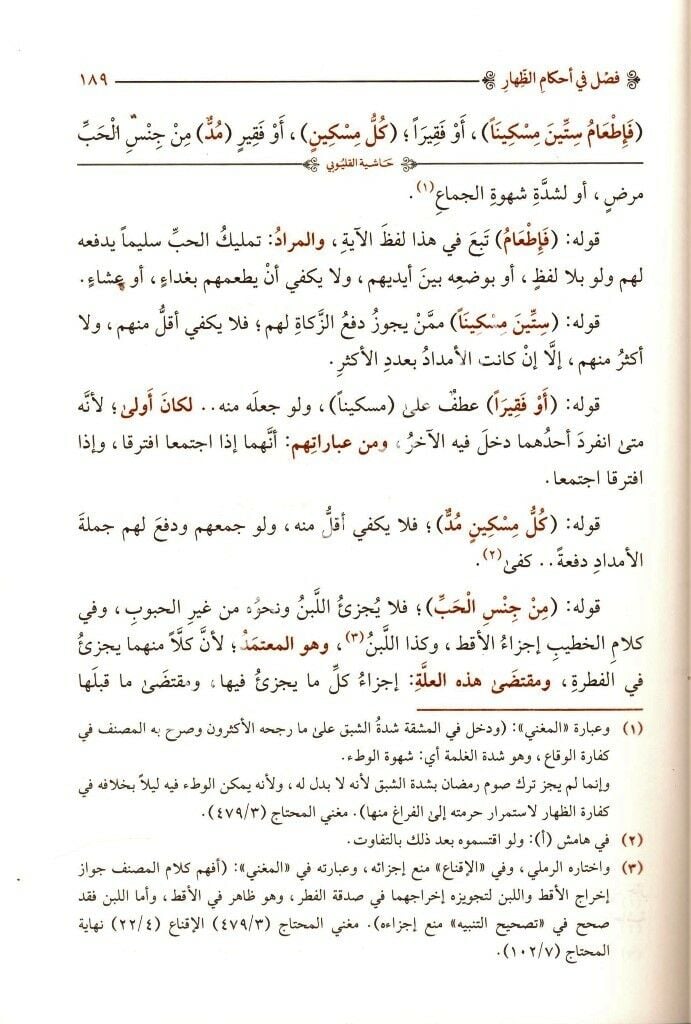 فصْل في أحكامِ الظِّهارِ ١٨٩
(فَإِطْعَامُ سِتِّينَ مِسْكِينَاً) ، أَوْ فَقِيرَاً ؛ (كُلُّ مِسْكِينٍ) ، أَوْ فَقِيرٍ (مُدٌّ) مِنْ جِنْسِ الْحَبِّ
حَاشية القليُوبي
مرضٍ ، أو لشدَّةِ شهوةِ الجماعِ(١) .
قوله: (فَإِطْعَامُ) تَبِعَ في هذا لفظَ الآيةِ ، والمرادُ: تمليكُ الحبِّ سليماً يدفعه
لهم ولو بلا لفظٍ ، أو بوضعِه بينَ أيديهم ، ولا يكفي أنْ يطعمهم بغداءٍ ، أو عشاءٍ .
قوله: (سِتِّينَ مِسْكِينَاً) ممَّنْ يجوزُ دفعُ الزَّكاةِ لهم ؛ فلا يكفي أقلُّ منهم ، ولا
أكثرُ منهم ، إلَّا إنْ كانت الأمدادُ بعددِ الأكثرِ .
قوله: (أَوْ فَقِيرَاً) عطفٌ على (مسكيناً) ، ولو جعلَه منه . . لكانَ أَولىٰ ؛ لأنَّه
متىٰ انفردَ أحدُهما دخلَ فيه الآخرُ ، ومن عباراتِهم: أنَّهما إذا اجتمعا افترقا ، وإذا
افترقا اجتمعا .
قوله: (كُلُّ مِسْكِينٍ مُدٌّ) ؛ فلا يكفي أقلُّ منه ، ولو جمعهم ودفعَ لهم جملةَ
الأمدادِ دفعةً . . كفىٰ(٢) .
قوله: (مِنْ جِنْسِ الْحَبِّ) ؛ فلا يُجزئُ اللَّبنُ ونحوُه من غيرِ الحبوبِ ، وفي
كلامِ الخطيبِ إجزاءُ الأقط ، وكذا اللَّبنُ(٣) ، وهو المعتمَدُ ؛ لأنَّ كلَّاً منهما يجزئُ
في الفطرةِ ، ومقتضىٰ هذه العلَّةِ: إجزاءُ كلِّ ما يجزئُ فيها ، ومقتضىٰ ما قبلَها
(١) وعبارة «المغني»: (ودخل في المشقة شدةُ الشبق علىٰ ما رجحه الأكثرون وصرح به المصنف في
كفارة الوقاع ، وهو شدة الغلمة أي: شهوة الوطء .
وإنما لم يجز ترك صوم رمضان بشدة الشبق لأنه لا بدل له ، ولأنه يمكن الوطء فيه ليلاً بخلافه في
كفارة الظهار لاستمرار حرمته إلى الفراغ منها) . مغني المحتاج (٤٧٩/٣) .
(٢) في هامش (أ): ولو اقتسموه بعد ذلك بالتفاوت .
(٣) واختاره الرملي ، وفي «الإقناع» منع إجزائه ، وعبارته في «المغني»: (أفهم كلام المصنف جواز
إخراج الأقط واللبن لتجويزه إخراجهما في صدقة الفطر ، وهو ظاهر في الأقط ، وأما اللبن فقد
صحح في «تصحيح التنبيه» منع إجزاءه) . مغني المحتاج (٤٧٩/٣) الإقناع (٢٢/٤) نهاية
المحتاج (١٠٢/٧) .